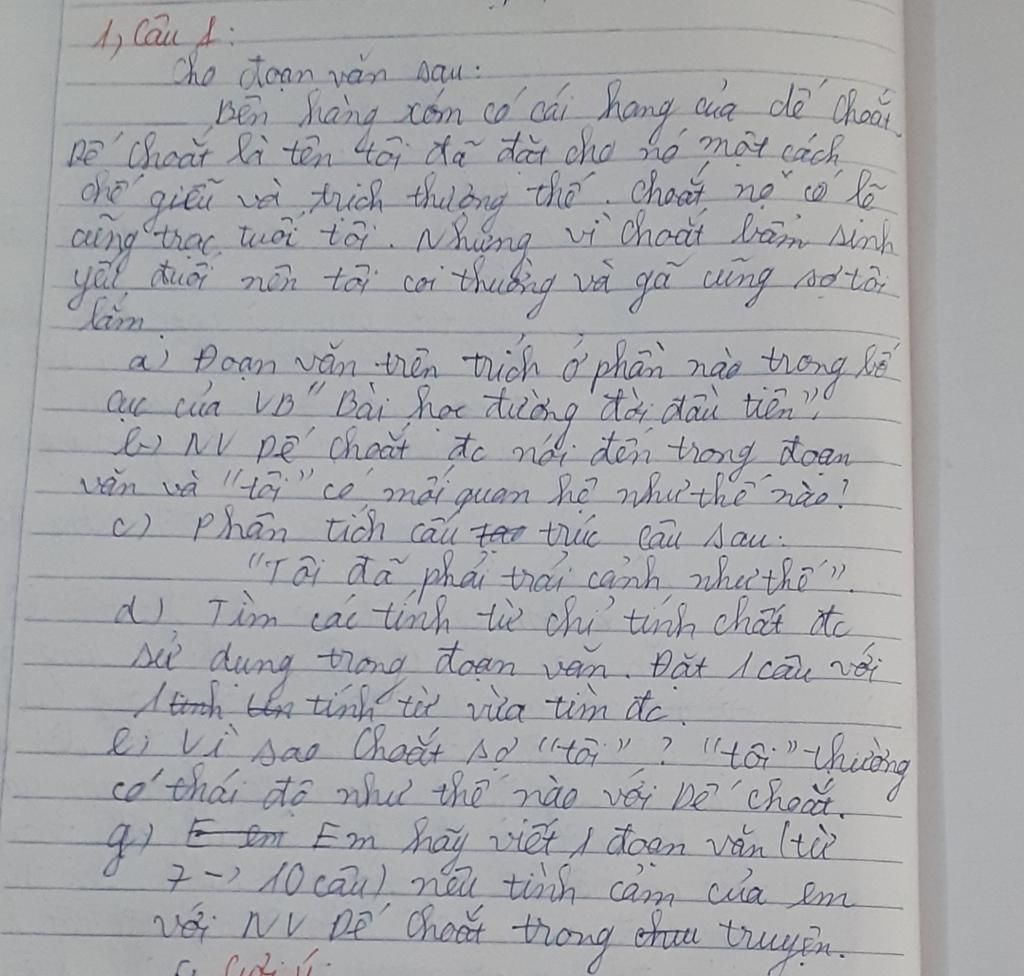 1, Câu 1:
Cho đoạn văn sau:
Bên hàng xóm có cái hang của dế Choắt.
Dế Choắt là tên tôi đã đặt cho nó một cách
chế giễu và trịch thượng thế. Choắt nọ có lẽ
cũng trạc tuổi tôi. Nhưng vì Choắt bẩm sinh
yếu đuối nên tôi coi thường và gã cũng sợ tôi
lắm.
a) Đoạn văn trên trích ở phần nào trong bố
cục của VB "Bài học đường đời đầu tiên"?
b) NV Dế Choắt đc nói đến trong đoạn
văn và "tôi" có mối quan hệ như thế nào?
c) Phân tích cấu tạo trúc câu sau:
"Tôi đã phải trải cảnh như thế".
d) Tìm các tính từ chỉ tính chất đc
sử dụng trong đoạn văn. Đặt 1 câu với
1 tính từ vừa tìm đc.
e) Vì sao Choắt sợ "tôi"? "tôi" thường
có thái độ như thế nào với Dế Choắt.
g) E em Em hãy viết 1 đoạn văn (từ
7 -> 10 câu) nêu tình cảm của em
với NV Dế Choắt trong truyện.